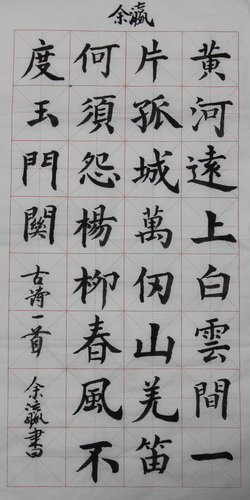 余瀛
黄河遠上白雲間一
片孤城萬仞山羌笛
何須怨楊柳春風不
度玉門關
古诗一首
余瀛書